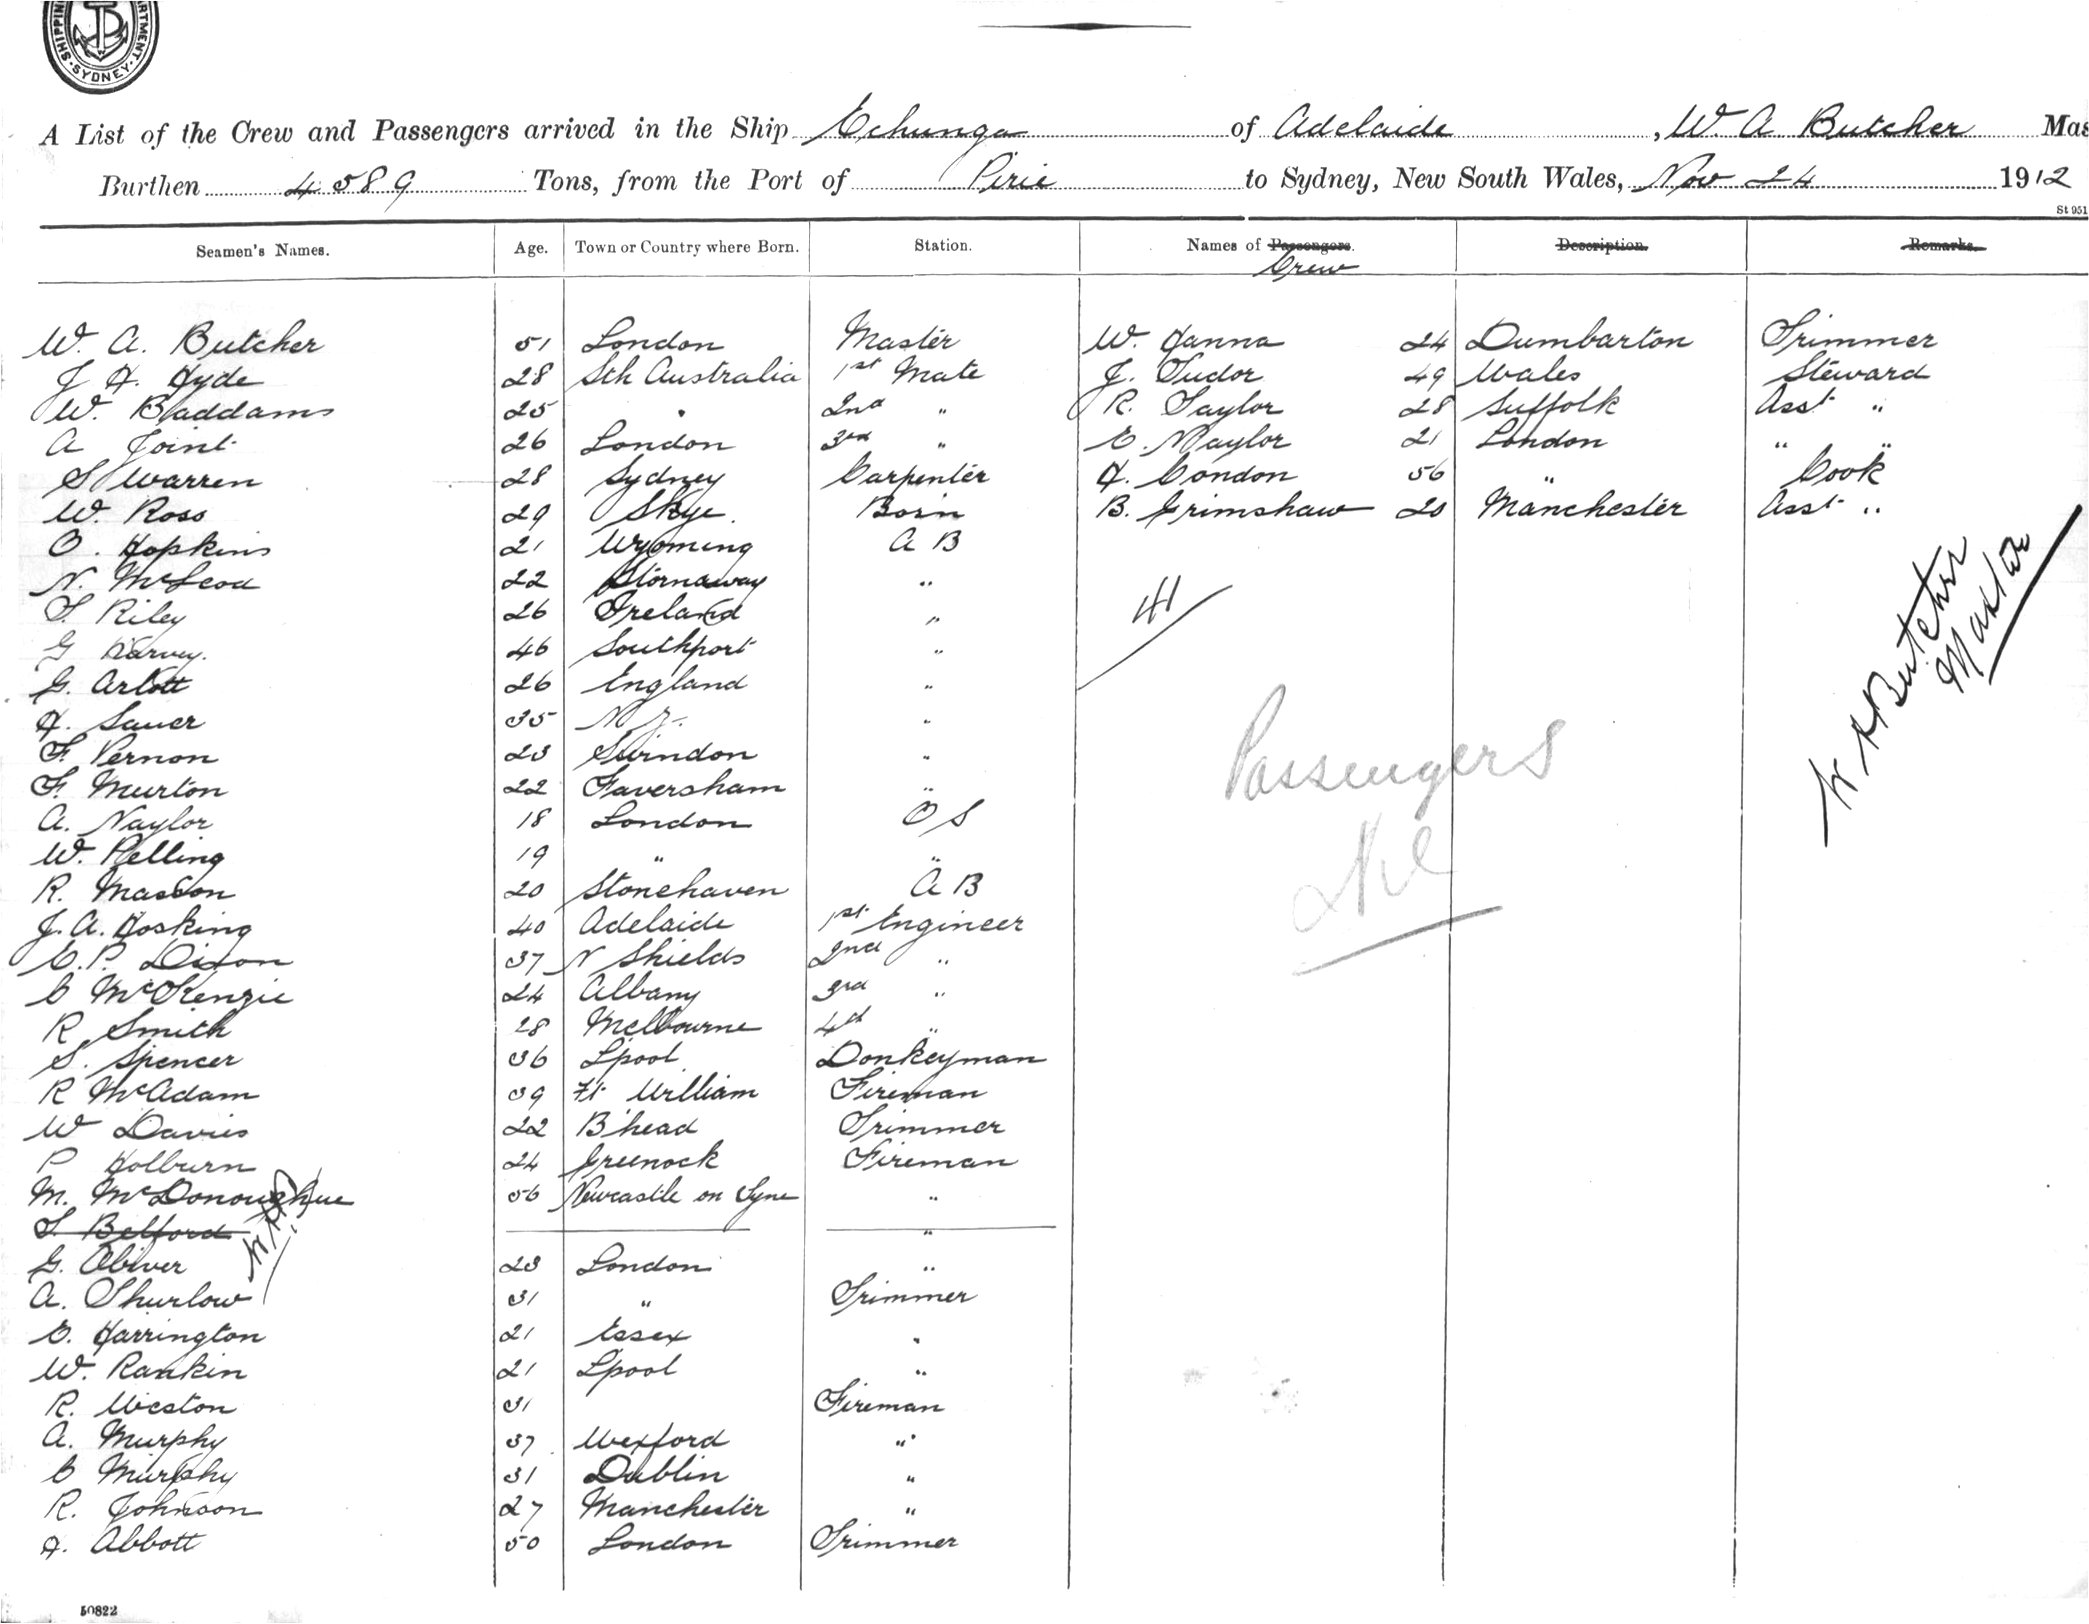 SHIPPING DEPARTMENT SYDNEY
A List of the Crew and Passengers arrived in the Ship Echunga of Adelaide, W. A Butcher Mas
Burthen 4589 Tons, from the Port of Pirie to Sydney, New South Wales, Nov 24 1912
St 951
Seamen's Names. Age. Town or Country where Born. Station. Names of Passengers. Description. Remarks.
Crew
W. A. Butcher 51 London Master W. Hanna 24 Dumbarton Trimmer
J H. Hyde 28 Sth Australia 1st Mate J. Tudor 49 Wales Steward
W. Baddams 25 " 2nd " R. Taylor 28 Suffolk Asst "
A Joint 26 London 3rd " E. Naylor 21 London " "
S Warren 28 Sydney Carpenter H. Condon 56 " Cook
W. Ross 29 Skye. Bosn B. Grimshaw 20 Manchester Asst "
O. Hopkins 21 Wyoming A B
N. McLeod 22 Stornaway "
T. Riley 26 Ireland "
41
G Harvey. 46 Southport "
G. Arlott 26 England "
H. Sauer 35 N Z. "
F. Vernon 23 Swindon "
F. Murton 22 Faversham "
A. Naylor 18 London O S
W. Pelling 19 " "
R. Masson 20 Stonehaven A B
J. A. Hosking 40 Adelaide 1st Engineer
E. P. Dixon 37 N Shields 2nd "
C McKenzie 24 Albany 3rd "
R Smith 28 Melbourne 4th "
S. Spencer 36 Lpool Donkeyman
R McAdam 39 Ft William Fireman
W Davies 22 B'head Trimmer
P Holburn 24 Greenock Fireman
M. McDonoughue 56 Newcastle on Tyne "
T. Belford "
G. Oliver 23 London "
A. Thurlow 31 " Trimmer
E. Harrington 21 Essex "
W. Rankin 21 Lpool "
R. Weston 31 Fireman
A. Murphy 37 Wexford "
C Murphy 31 Dublin "
R. Johnson 27 Manchester "
H. Abbott 50 London Trimmer
Passengers
Nil
W A Butcher
Master
50822